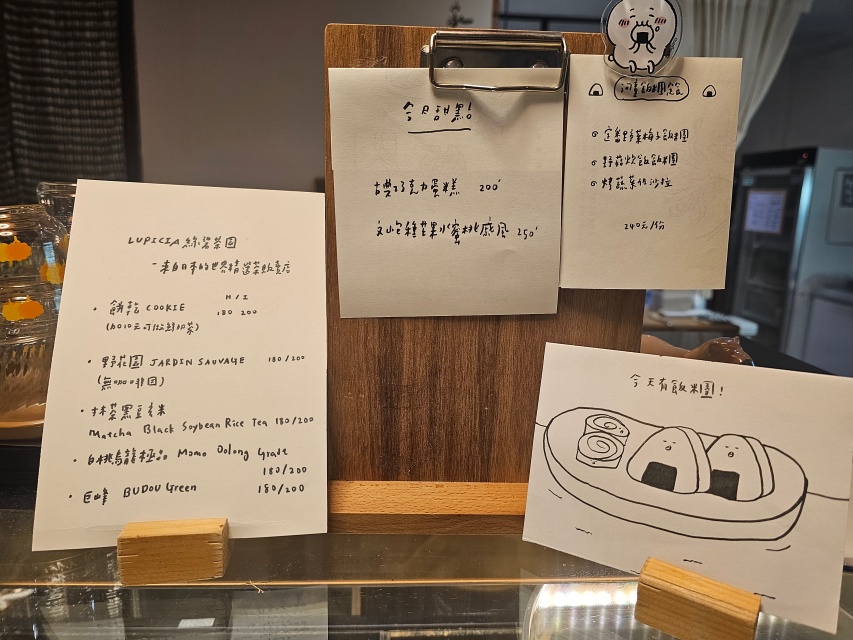 LUPICIA 綠碧茶園
- 來自日本的世界精選茶飲賣店
H / I
• 餅乾 COOKIE 180 200
(加10元可做鮮奶茶)
• 野花園 JARDIN SAUVAGE 180/200
(無咖啡因)
• 抹茶黑豆玄米
Matcha Black Soybean Rice Tea 180/200
• 白桃烏龍極品 Momo Oolong Grade
180/200
• 巨峰 BUDOU Green 180/200
今日甜點!
巧克力蛋糕 200
水蜜桃戚風 250
飯糰套餐
定番野菜梅子飯糰
野菇炊飯飯糰
烤蔬菜佐沙拉
240元/份
今天有飯糰!